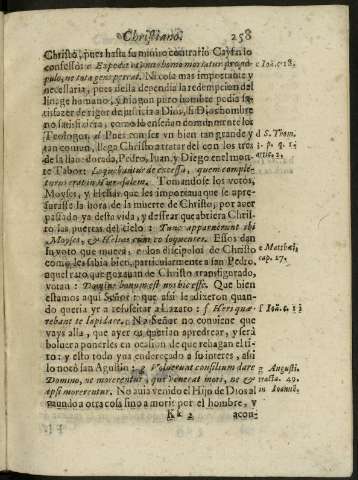 Christiano. 258
Christo, pues hasta su mismo contrario Cayfas lo
confessò: c Expedit vt vnus homo moriatur pro po-
pulo, ne tota gens pereat. Ni cosa mas importante y
necessaria, pues della dependia la redempcion del
linage humano, y ningun puro hombre podia sa-
tisfazer de rigor de justicia a Dios, si Dios hombre
no satisfiziera, como lo enseñan doctamente los
Teologos. d Pues con ser vn bien tan grande y
tan comun, llega Christo a tratar del con los tres
de la llaue dorada, Pedro, Iuan, y Diego en el mon-
te Tabor: Loquebantur de excessu, quem comple-
turus erat in Hierusalem. Tomandose los votos,
Moyses, y Helias, que les importaua que se apre-
surasse la hora de la muerte de Christo, por auer
passado ya desta vida, y dessear que abriera Chris-
to las puertas del cielo: Tunc apparuerunt ibi
Moyses, & Helias cum eo loquentes. Essos dan
su voto que muera, e los discipulos de Christo
como les sabia bien, particularmente a san Pedro,
aquel rato que gozauan de Christo transfigurado,
votan: Domine bonum est nos hic esse. Que bien
estamos aqui Señor: que assi le dixeron quan-
do queria yr a resuscitar a Lazaro: f Heri quæ-
rebant te lapidare. No Señor no conuiene que
vays alla, que ayer os querian apedrear, y será
boluera ponerles en ocasion de que rehagan el ti-
ro: y esto todo yua endereçado a su interes, assi
lo notò san Agustin: g Voluerunt consilium dare
Domino, ne moreretur, qui venerat mori, ne &
ipsi morerentur. No auia venido el Hijo de Dios al
mundo a otra cosa sino a morir por el hombre, y
Kk 2 acon-
c Ioã. c. 18.
d S. Thom.
3. p. q. 1.
artic. 2.
e Matthæi,
cap. 17.
f Ioã. c. 11
g Augusti.
tracta. 49.
in Ioannē.